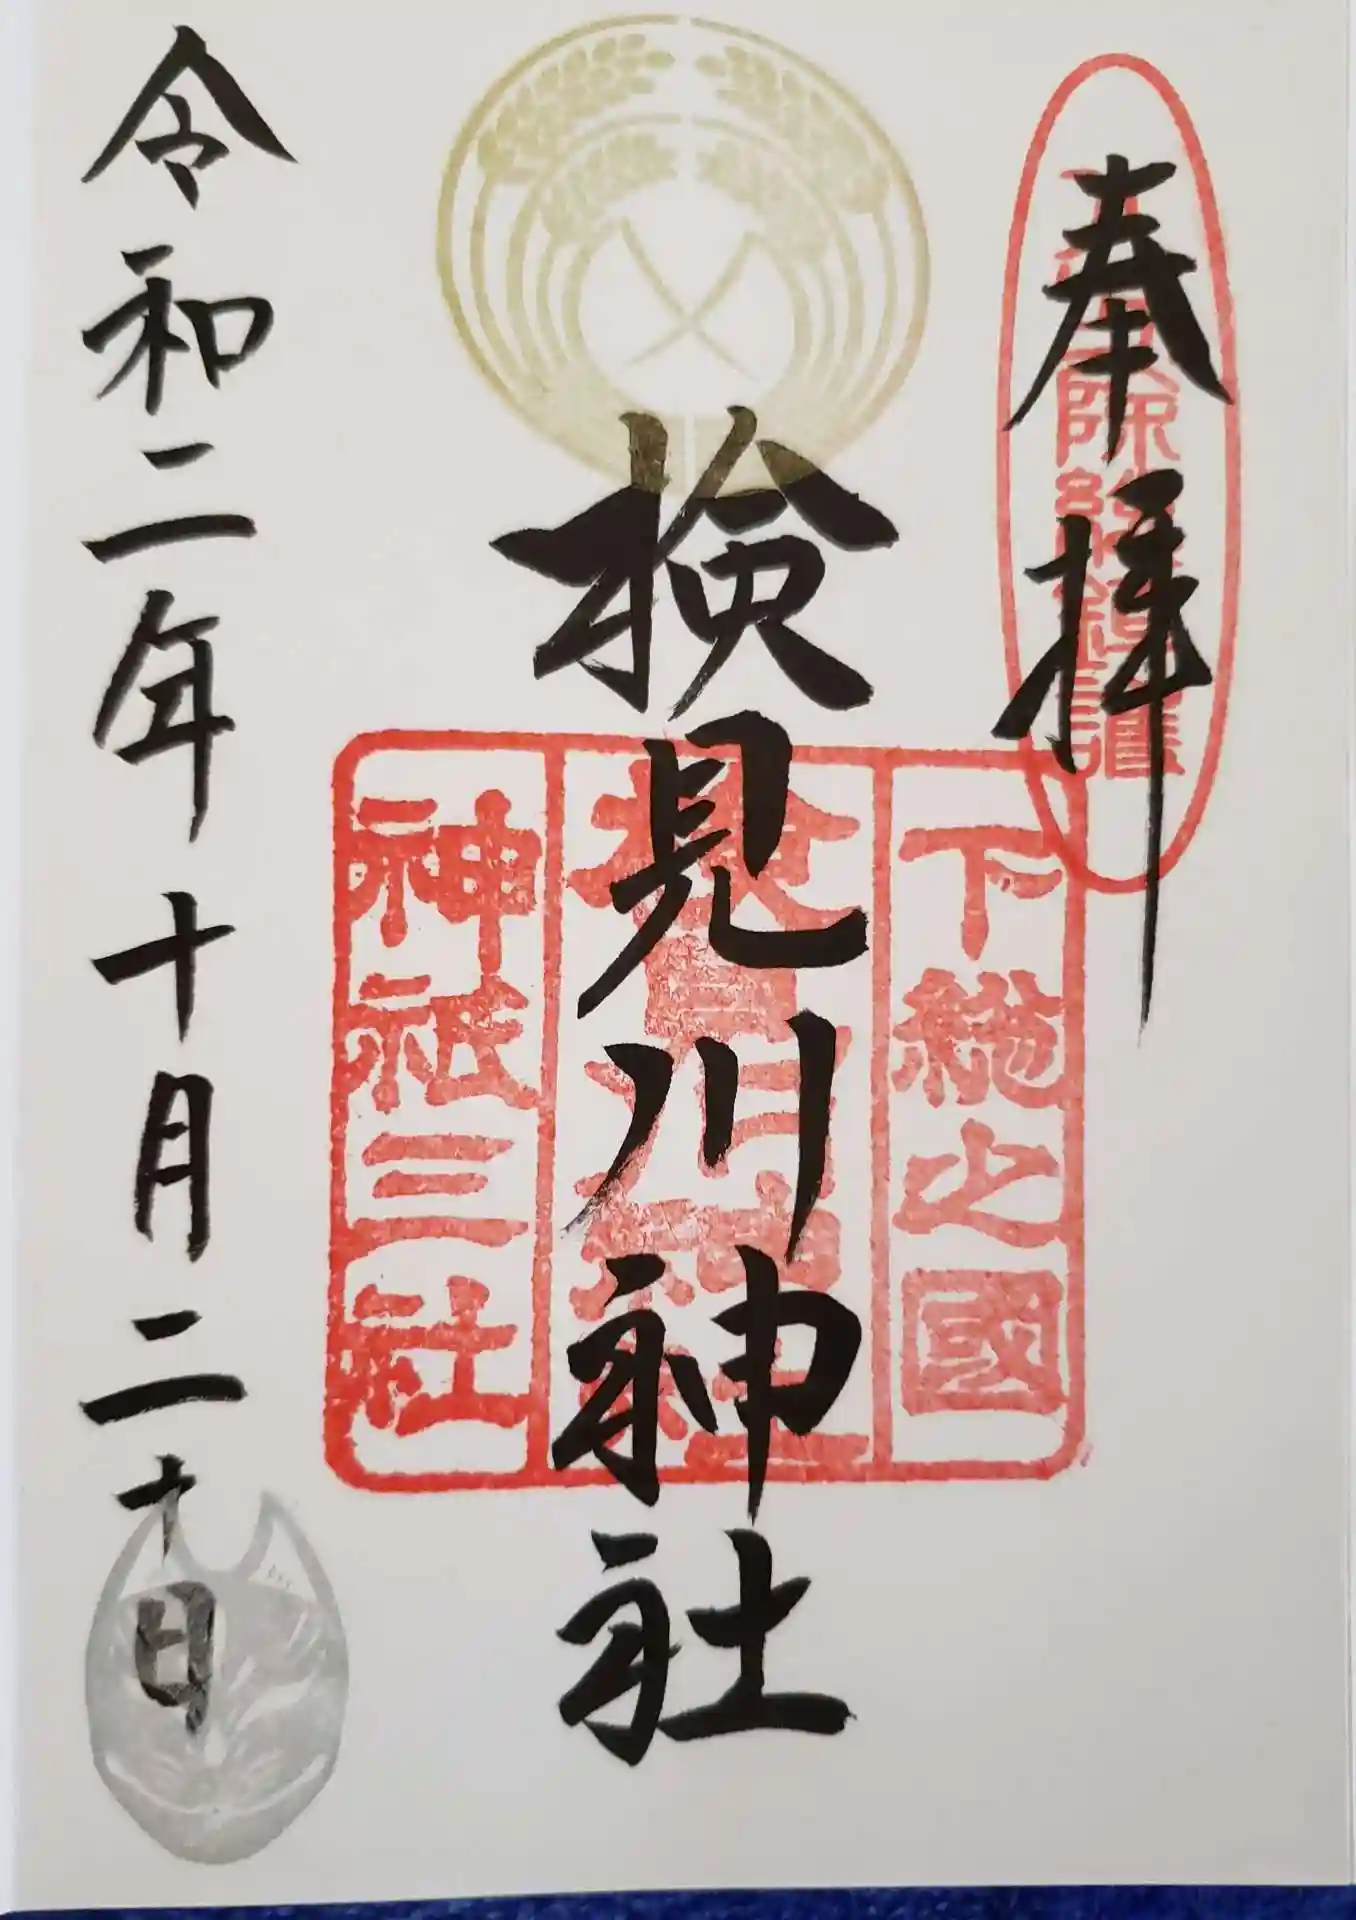 奉拝
下総之國
検見川神社
検見川神社
神祇三社
令和二年十月二十日